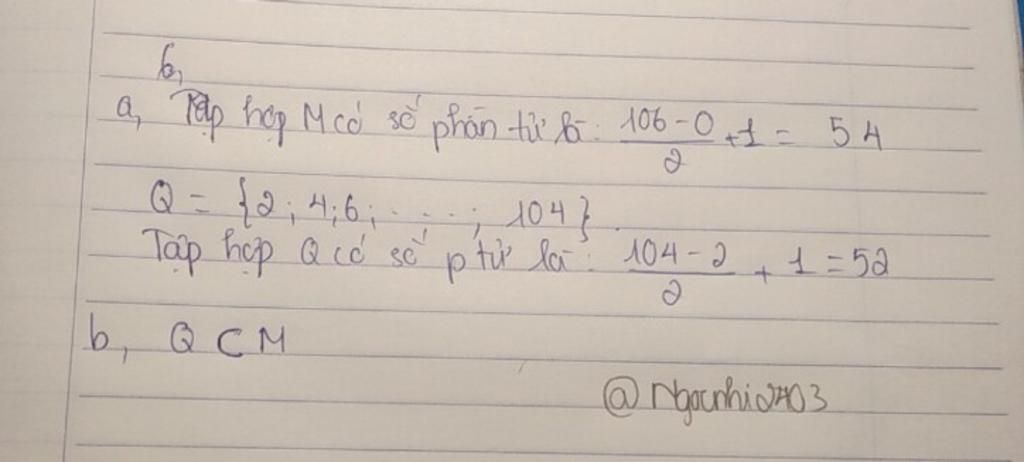 6,
a, Tập hợp M có số phần tử là: \frac{106-0}{2}+1 = 54
Q = {2; 4; 6; .....; 104}.
Tập hợp Q có số p tử là: \frac{104-2}{2} + 1 = 52
b, Q ⊂ M
@Ngocnhi2703